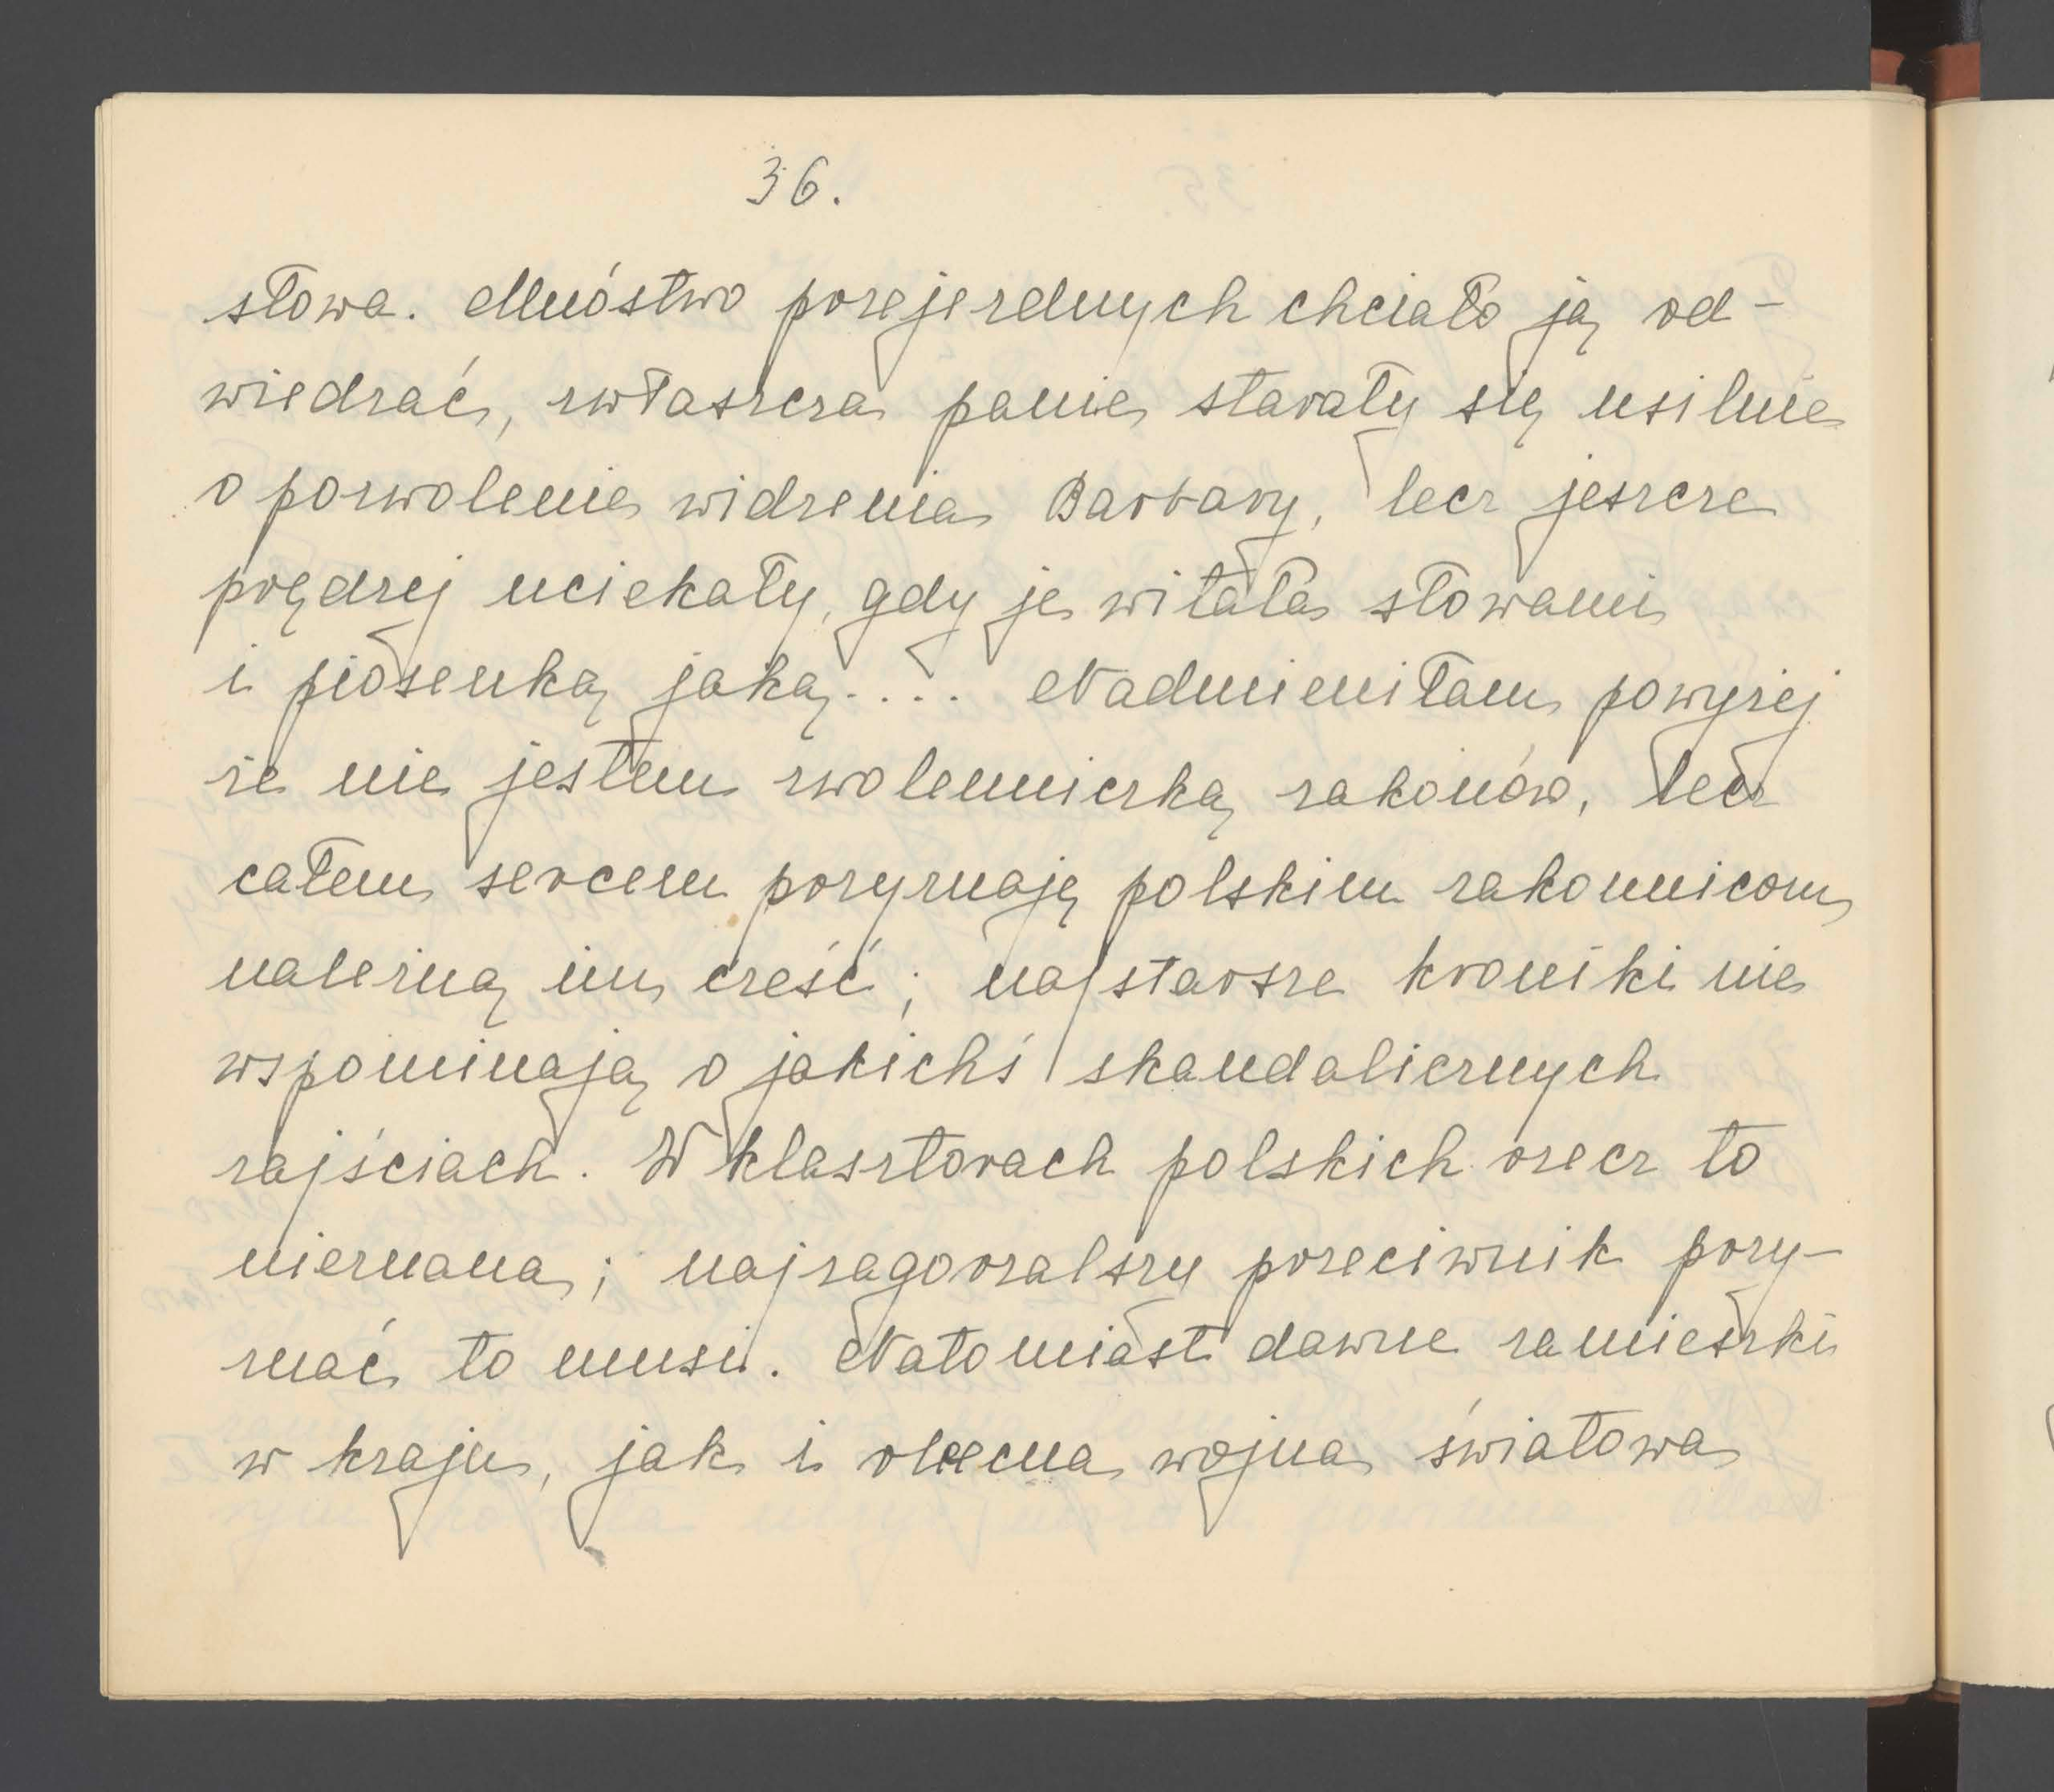 36.
słowa. Mnóstwo przejezdnych chciało ją od-
wiedzać, zwłaszcza panie starały się usilnie
o pozwolenie widzenia Barbary, lecz jeszcze
prędzej uciekały, gdy je witała słowami
i piosenką jaką....  Nadmieniłam powyżej
że nie jestem zwolenniczką zakonów, lecz
całem sercem przyznaję polskim zakonnicom
należną im cześć; najstarsze kroniki nie
wspominają o jakichś skandalicznych
zajściach. W klasztorach polskich rzecz to
nieznana; najzagorzalszy przeciwnik przy-
znać to musi. Natomiast dawne zamieszki
w kraju, jak i obecna wojna światowa